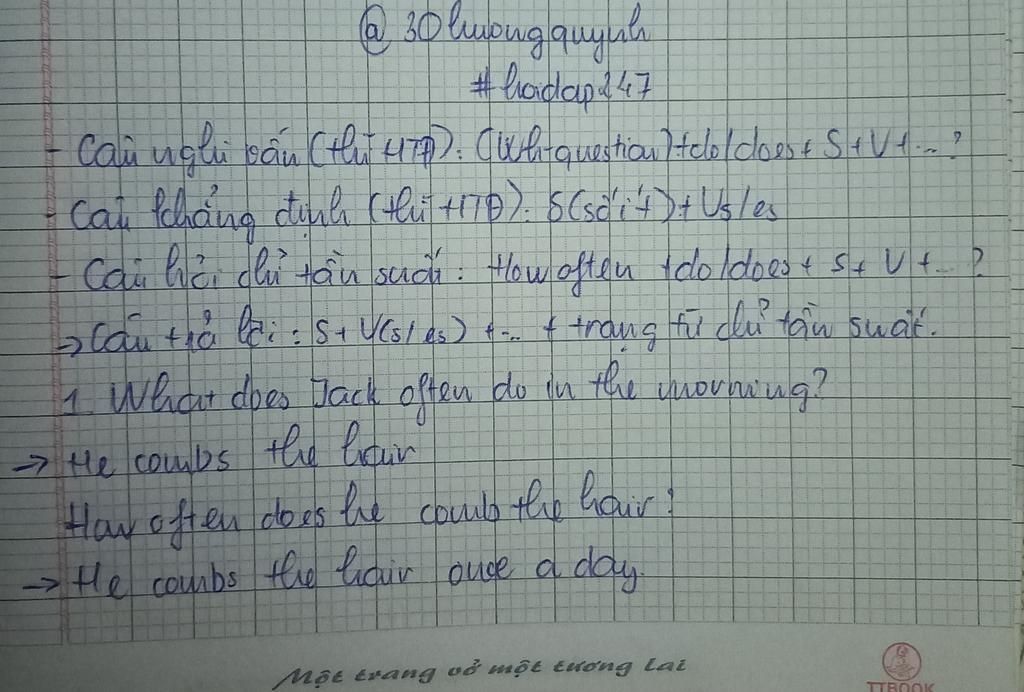 @ 30huongquynh
# hoidap247
- Câu nghi vấn (thì HTĐ): (Wh-question)+do/does+ S+V+...?
- Câu khẳng định (thì HTĐ): S(số ít)+Vs/es
- Câu hỏi chỉ tần suất: How often +do/does+ S+ V +...?
→ Câu trả lời: S+ V(s/es) +... + trạng từ chỉ tần suất.
1. What does Jack often do in the morning?
→ He combs the hair
How often does he comb the hair?
→ He combs the hair once a day.
Một trang vở một tương lai
TTBOOK